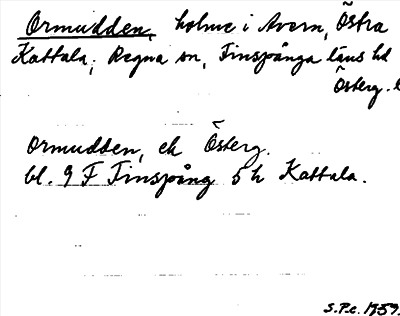 Ormudden, holme i Avern, Östra
Kattala, Regna sn, Finspånga läns hd
Österg. l
Ormudden, ek Österg.
bl. 9 F Finspång 5 h Kattala.
S.P.c. 1959.